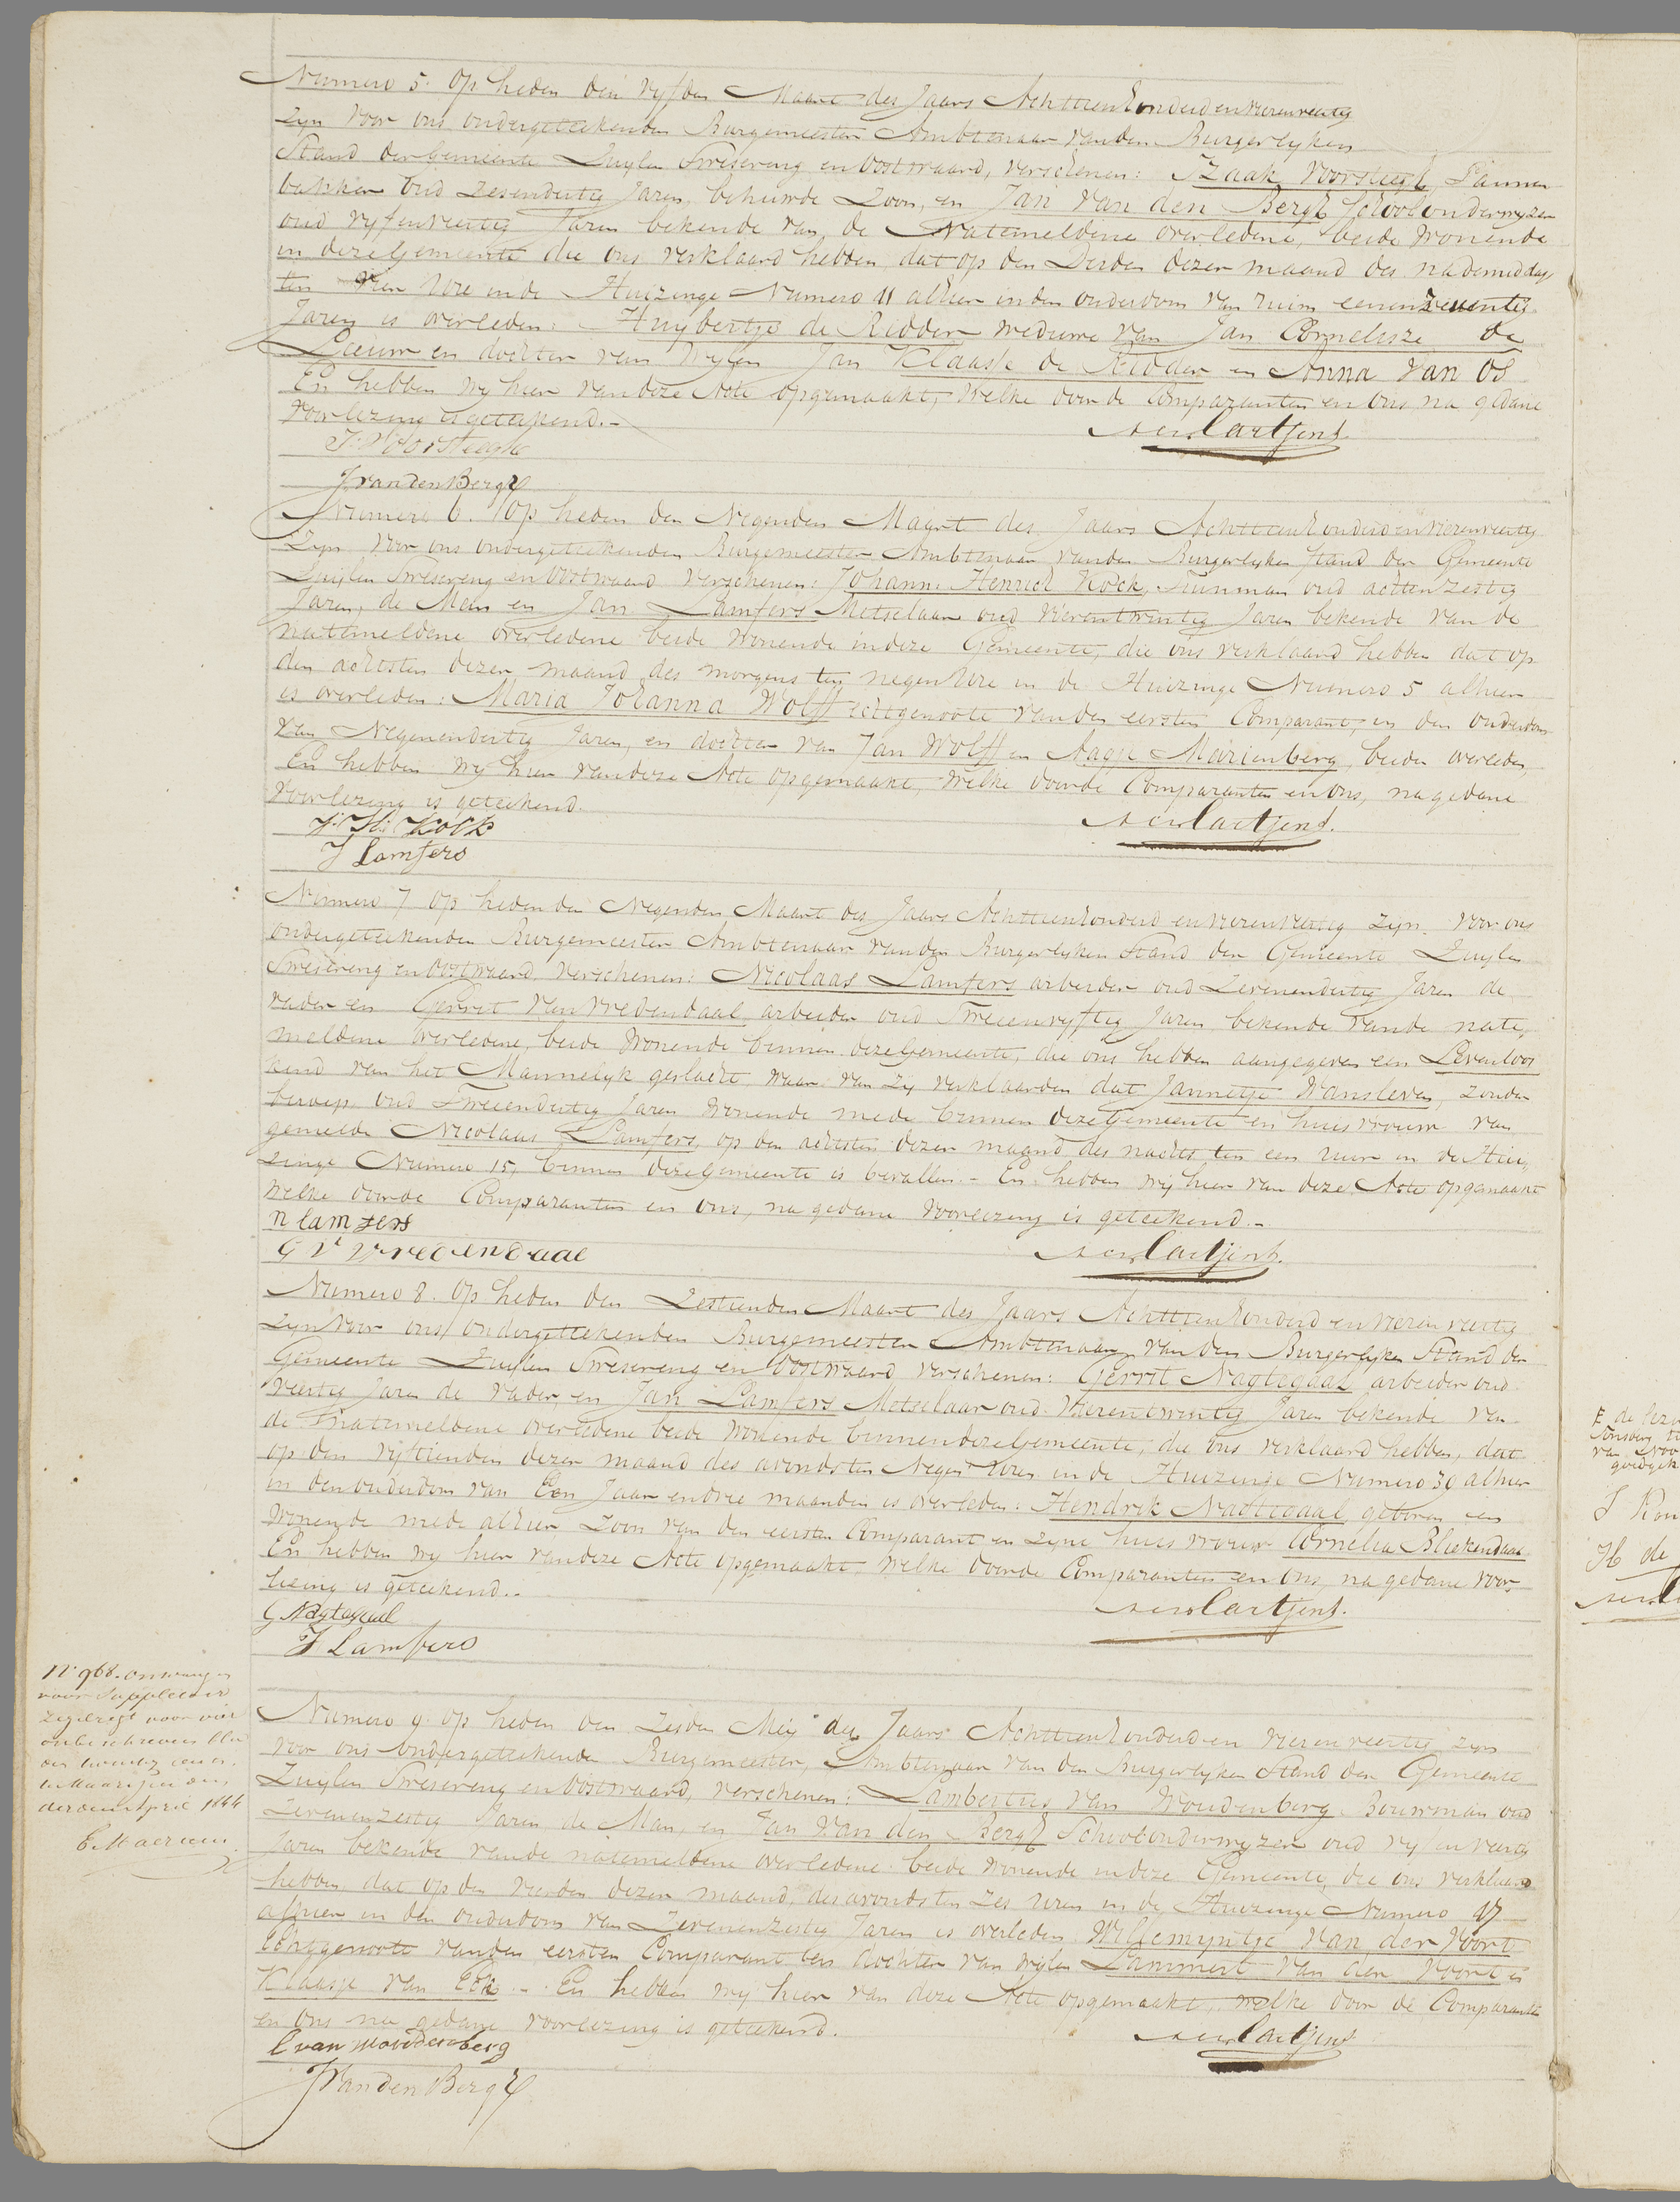 Numero 5. Op heden den vyfden Maart des Jaars Achttienhonderdenvierenveertig
zyn voor ons ondergeteekenden Burgemeester Ambtenaar van den Burgerlyken
Stand der Gemeente Zuylen Swesereng en Oostwaard, verschenen: Izaak Voorsteegh, Pannen
bakker oud zesendertig Jaren, behuwde Zoon, en Jan van den Bergh Schoolonderwyzer
oud vyfenveertig Jaren bekende van de Natemeldene overledene, beide wonende
in deze Gemeente die ons verklaard hebben, dat op den Derden dezer maand des nademiddags
ten vier Ure in de Huizinge Numero 11 alhier in den ouderdom van ruim eenenzeventig
Jaren is overleden: Huybertje de Ridder weduwe van Jan Cornelisze de
Leeuw en dochter van wylen Jan Klaasse de Ridder en Anna van Os
En hebben wy hier van deze Acte opgemaakt, welke door de Comparanten en ons, na gedane
voorlezing is geteekend.-
I: Voorsteegh
J van den Bergh
Numero 6. Op heden den Negenden Maart des Jaars Achttienhonderdenvierenveertig
Zyn voor ons ondergeteekenden Burgemeester Ambtenaar van den Burgerlyken Stand der Gemeente
Zuylen Swesereng en Oostwaard verschenen: Johann Henrich Kock, Tuinman oud achtenzestig
Jaren, de Man en Jan Lamfers Metselaar oud vierentwintig Jaren bekende van de
natemeldene overledene beide wonende in deze Gemeente, die ons verklaard hebben dat op
den achtsten dezer maand des morgens ten negen Ure in de Huizinge Numero 5 alhier
is overleden: Maria Johanna Wolff echtgenoote van den eersten Comparant, in den ouderdom
van Negenendertig Jaren, en dochter van Jan Wolff en Aagje Marienberg, beiden overleden
En hebben wy hier van deze Acte opgemaakt, welke door de Comparanten en ons, na gedane
voorlezing is geteekend.
J: H: Kock
J Lamfers
Numero 7 Op heden den Negenden Maart des Jaars Achttienhonderd en vierenveertig zyn voor ons
ondergeteekenden Burgemeester Ambtenaar van den Burgerlyken Stand der Gemeente Zuylen
Swesereng en Oostwaard verschenen: Nicolaas Lamfers arbeider oud Zevenendertig Jaren de
vader en Gerrit van Vredendaal arbeider oud Tweeenvyftig Jaren bekende van de nate,
meldene overledene, beide wonende binnen deze Gemeente, die ons hebben aangegeven een Levenloos
kind van het Mannelyk geslacht waar van zy verklaarden dat Jannetje Wansleven, zonder
beroep oud Tweeendertig Jaren wonende mede binnen deze Gemeente en huisvrouw van
gemelde Nicolaas Lamfers, op den achtsten dezer maand des nachts ten een uur in de Hui,,
zinge Numero 15, binnen deze Gemeente is bevallen.- En hebben wy hier van deze Acte opgemaakt
welke door de Comparanten en ons, na gedane voorlezing is geteekend.-
n lamfers
G V Vredendaal
Numero 8. Op heden den Zestienden Maart des Jaars Achttienhonderd en vierenveertig
zyn voor ons ondergeteekenden Burgemeester Ambtenaar van den Burgerlyken Stand der
Gemeente Zuylen Swesereng en Oostwaard verschenen: Gerrit Nagtegaal arbeider oud
veertig Jaren de vader, en Jan Lamfers Metselaar oud vierentwintig Jaren bekende van
de natemeldene overledene beide wonende binnen deze Gemeente, die ons verklaard hebben, dat
op den vyftienden dezer maand des avonds ten Negen Uren in de Huizinge Numero 30 alhier
in den ouderdom van Een Jaar en drie maanden is overleden: Hendrik Nagtegaal geboren en
Wonende mede alhier Zoon van den eersten Comparant en zyne huisvrouw Cornelia Bliekendaal
En hebben wy hier van deze Acte opgemaakt, welke door de Comparanten en ons, na gedane voor-
lezing is geteekend.-
G Nagtegaal
J Lamfers
Nº 968. ontvangen
voor Suppletoir
zegelregt voor vier
onbeschreven bla
den
te Maarssen den
April 1844
Numero 9. Op heden den Zesden Mey des Jaars Achttienhonderd en vierenveertig zyn
voor ons ondergeteekende Burgemeester, Ambtenaar van den Burgerlyken Stand der Gemeente
Zuylen Swesereng en Oostwaard, verschenen: Lambertus van Woudenberg Bouwman oud
Zevenenzestig Jaren, de Man, en Jan van den Bergh Schoolonderwyzer oud vyfenveertig
Jaren bekende van de natemeldene overledene beide wonende in deze Gemeente, die ons verklaard
hebben, dat op den vierden dezer maand, des avonds ten zes uren in de Huizinge Numero 47
alhier in den ouderdom van Zevenenzestig Jaren is overleden Willemyntje van der Voort
Echtgenoote van den eersten Comparant en dochter van wylen Lammert van der Voort en
Klaasje van Eck.- En hebben wy hier van deze Acte opgemaakt, welke door de Comparanten
en ons na gedane voorlezing is geteekend.
L van woudenberg
J van den Bergh